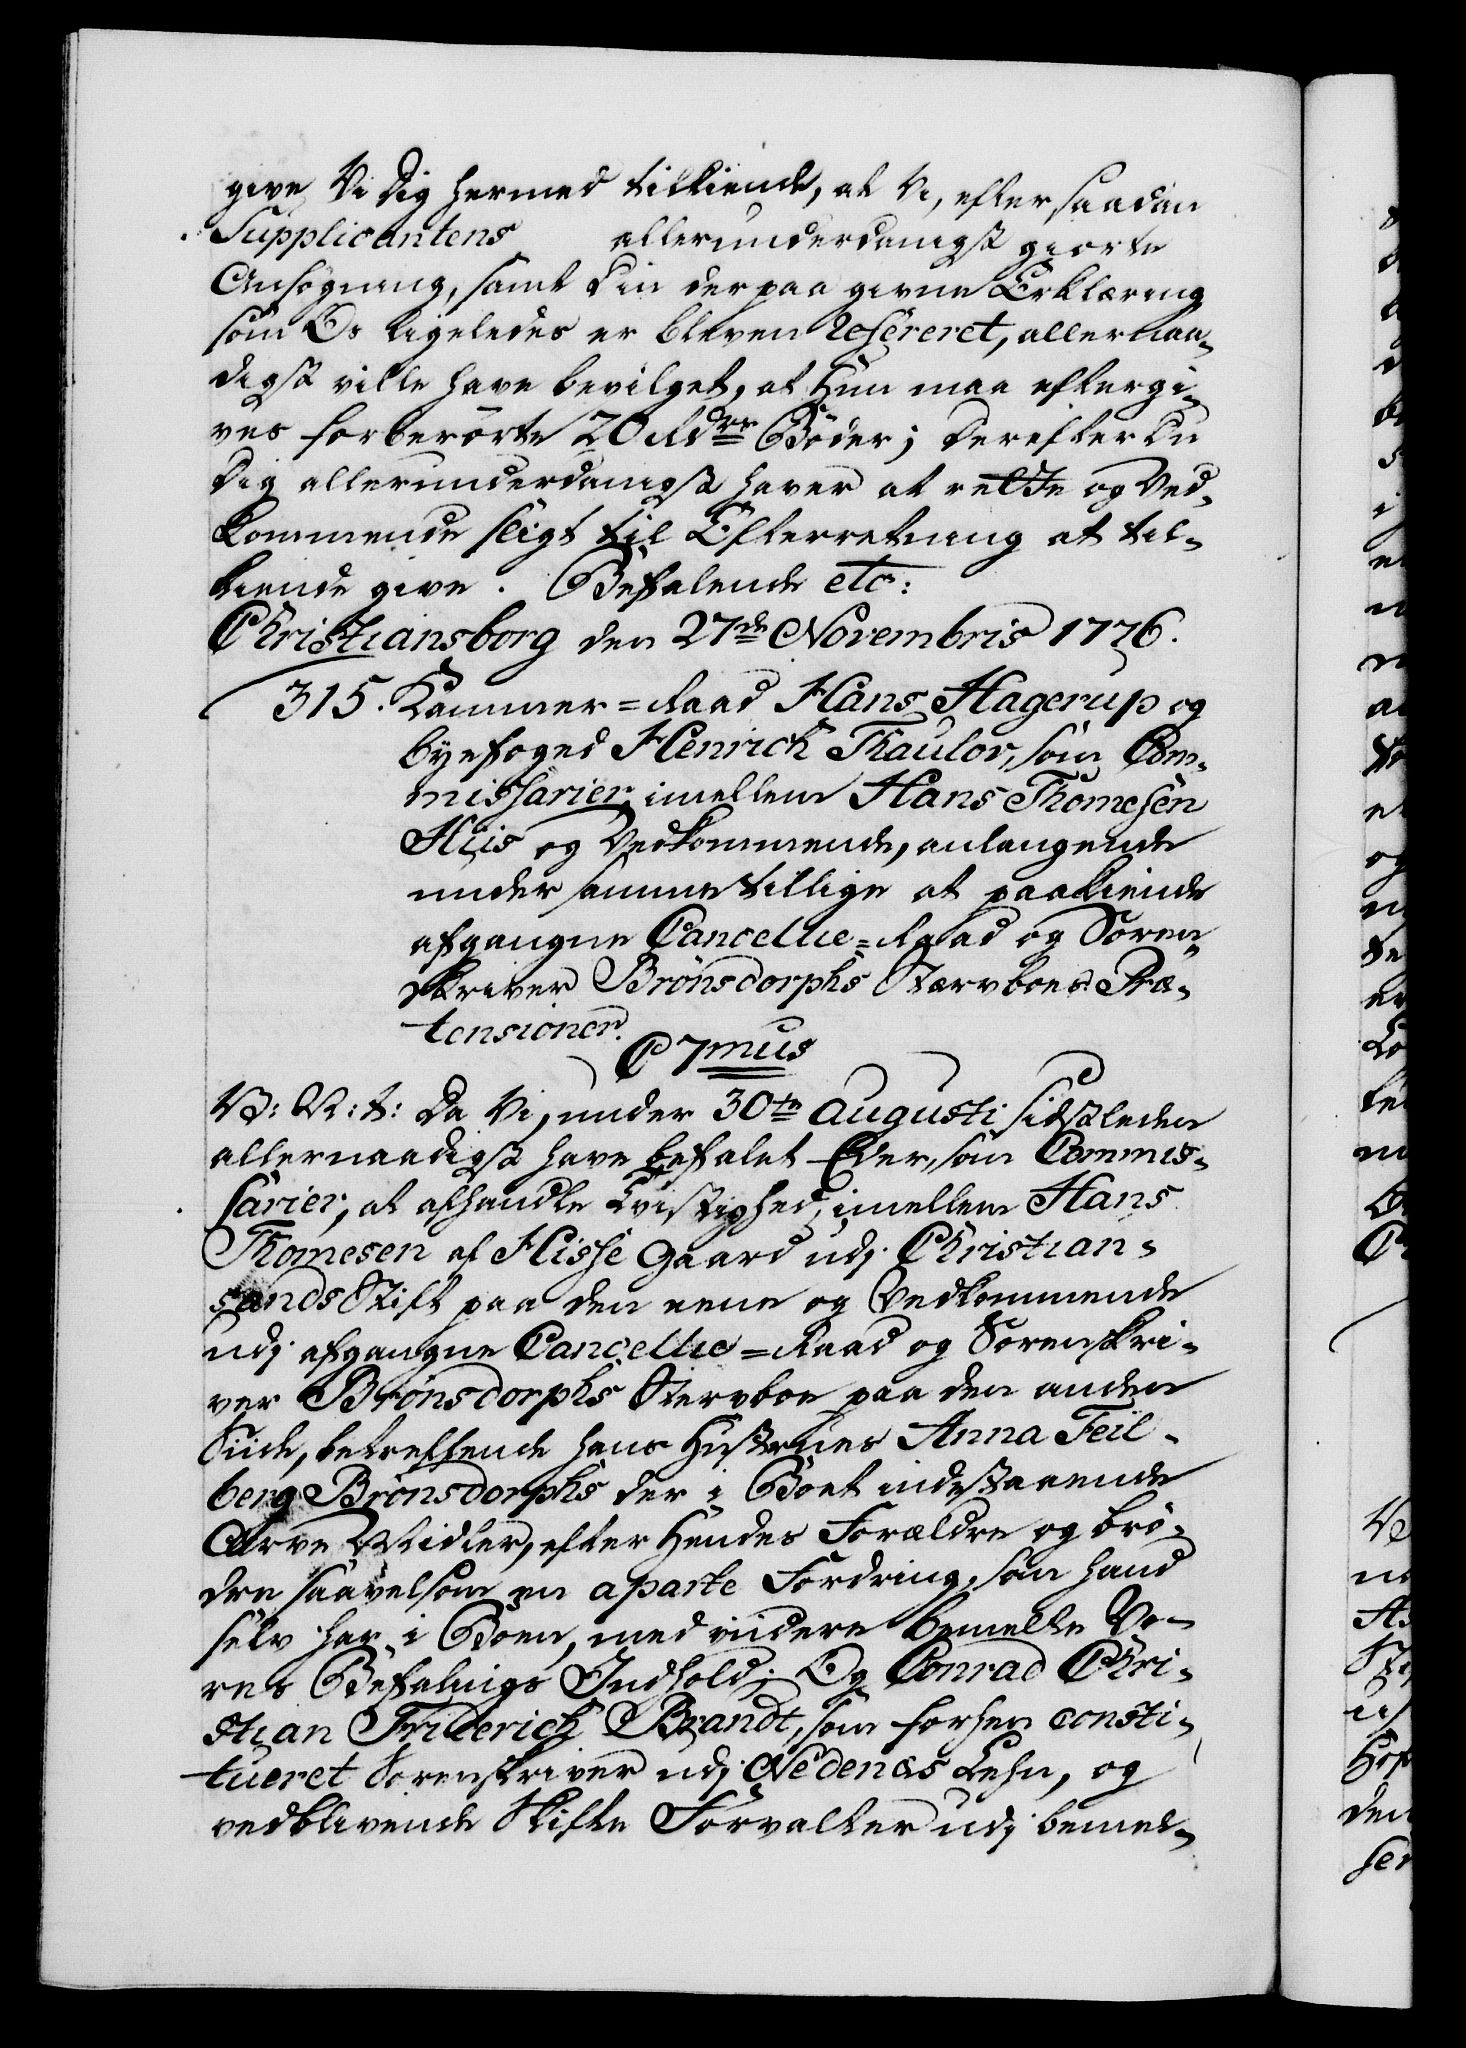 give Vi dig hermed tilkiende, at Vi, efter saadan
Supplicantens allerunderdanigst giorte
Ansøgning, samt din derpaa givne Erklæring
som Os ligeledes er bleven Refereret, allernaa-
digst ville have bevilget, at Hun maa eftergi-
ves forberørte 20 Rdrs Bøder; Derefter du
dig allerunderdanigst haver at rette og Ved-
kommende sligt til Efterretning at til-
kiende give. Befalende etc:
Christiansborg den 27de Novembris 1776.
315. Kammer-Raad Hans Hagerup og
byefoged Henrich Thaulov, som Com-
missarier imellem Hans Thomesen
Hiis og Vedkommende, anlangende
under samme tillige at paakiende
afgangne Cancellie-Raad og Soren-
skriver Brönsdorphs Stærvboes Præ-
tensioner.
C 7mus
V: R: t: Da Vi, under 30te Augusti sidstleden
allernaadigst have befalet Eder, som Commis-
sarier, at afhandle Tvistighed, imellem Hans
Thomesen af Hisse Gaard udj Christian-
sands Stift paa den eene og Vedkommende
udj afgangne Cancellie-Raad og Sorenskri-
ver Brönsdorphs Stervboe paa den anden
Siide, betreffende hans Hustrues Anna Feil-
berg Brönsdorphs der i Boet indestaaende
Arve Midler, efter Hendes Forældre og brö-
dre saavelsom en aparte Fordring, som hand
selv har i Boen, med viidere bemelte Vo-
res Befalnigs Indhold; Og Conrad Chri-
stian Friderich Brandt, som forhen consti-
tueret Sorenskriver udj Nedenæs Lehn, og
vedblivende Skifte Forvalter udj bemel-